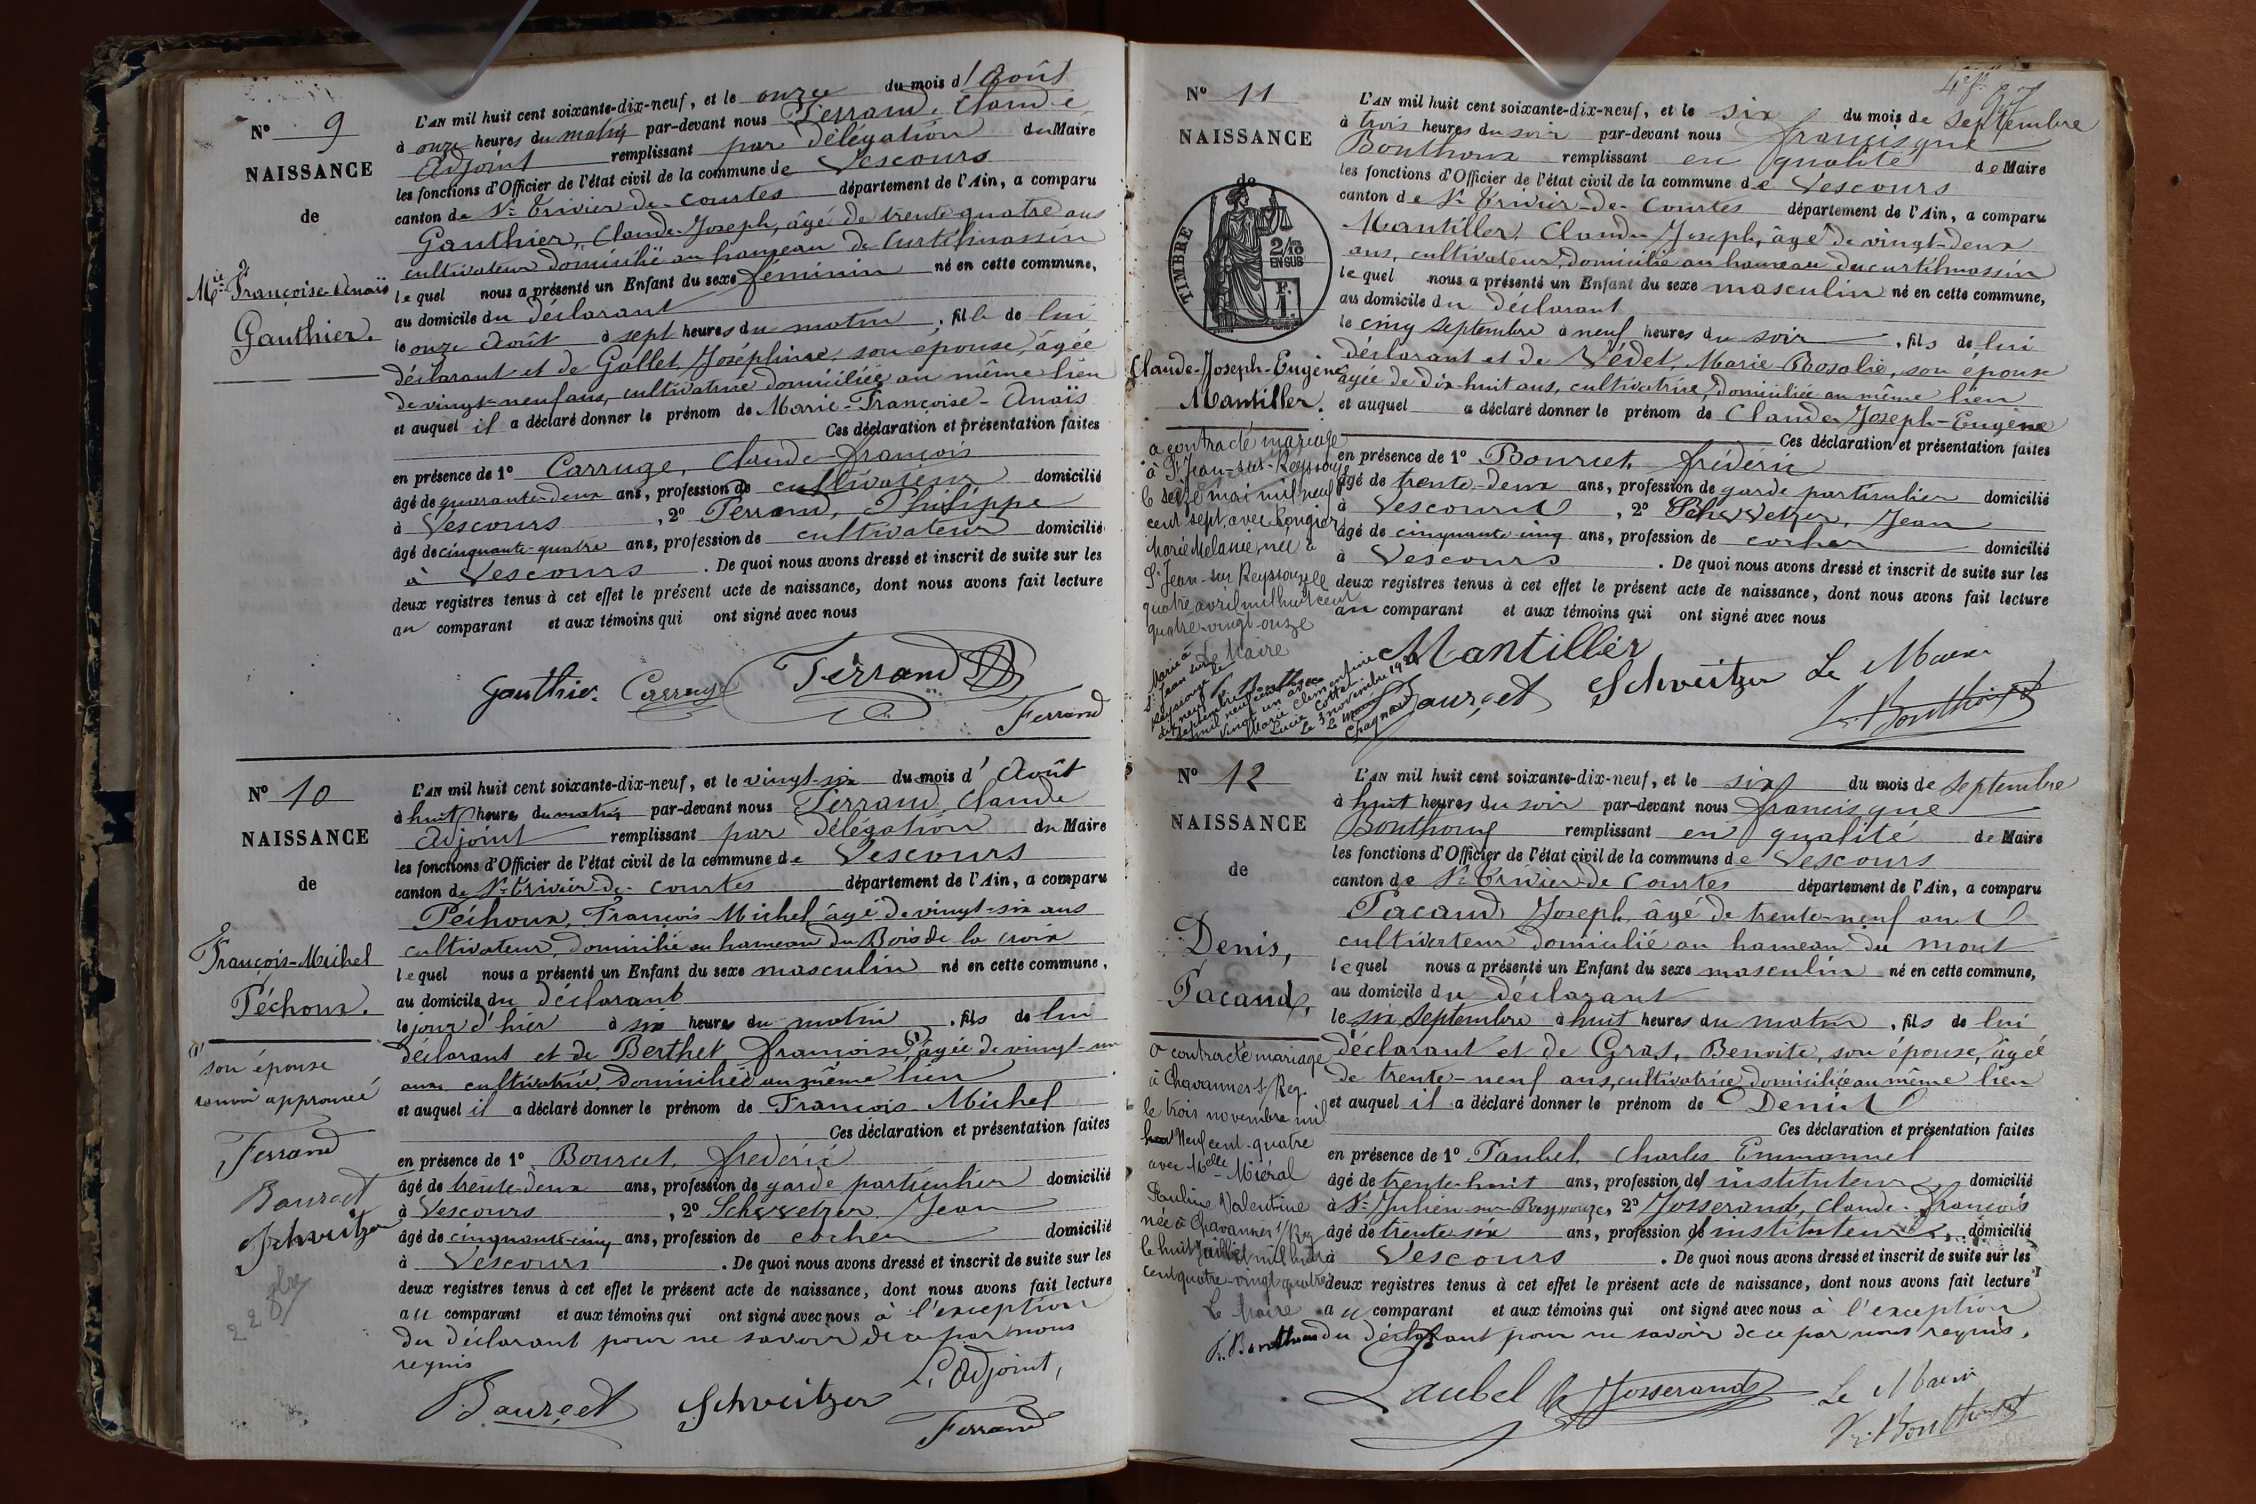 N° 9
NAISSANCE
de
Mie Françoise-Anaïs
Gauthier.
L'AN mil huit cent soixante-dix-neuf, et le onze du mois d'Août
à onze heures du matin par-devant nous Ferrand, Claude
Adjoint remplissant par délégation du Maire
les fonctions d'Officier de l'état civil de la commune de Vescours
canton de St Trivier-de-Courtes département de l'Ain, a comparu
Gauthier, Claude-Joseph, âgé de trente-quatre ans
cultivateur domicilié au hameau de Curtilmassin
lequel nous a présenté un Enfant du sexe féminin né en cette commune,
au domicile du déclarant
le onze Août à sept heures du matin, fille de lui
déclarant et de Gallet, Joséphine, son épouse, âgée
de vingt-neuf ans, cultivatrice domiciliée au même lieu
et auquel il a déclaré donner le prénom de Marie-Françoise-Anaïs
Ces déclaration et présentation faites
en présence de 1° Carruge, Claude-François
âgé de quarante-deux ans, profession de cultivateur domicilié
à Vescours, 2° Ferrand, Philippe
âgé de cinquante-quatre ans, profession de cultivateur domicilié
à Vescours. De quoi nous avons dressé et inscrit de suite sur les
deux registres tenus à cet effet le présent acte de naissance, dont nous avons fait lecture
au comparant et aux témoins qui ont signé avec nous
Gauthier Carruge Ferrand
Ferrand
N° 10
NAISSANCE
de
François-Michel
Péchoux.
(1)
son épouse
renvoi approuvé
Ferrand
Bourcet
Schweitzer
L'AN mil huit cent soixante-dix-neuf, et le vingt-six du mois d'Août
à huit heures du matin par-devant nous Ferrand, Claude
Adjoint remplissant par délégation du Maire
les fonctions d'Officier de l'état civil de la commune de Vescours
canton de St Trivier-de-Courtes département de l'Ain, a comparu
Péchoux, François-Michel âgé de vingt-six ans
cultivateur, domicilié au hameau du Bois de la croix
lequel nous a présenté un Enfant du sexe masculin né en cette commune,
au domicile du déclarant
le jour d'hier à six heures du matin, fils de lui
déclarant et de Berthet, françoise (1) âgée de vingt-un
ans cultivatrice, domiciliée au même lieu
et auquel il a déclaré donner le prénom de François Michel
Ces déclaration et présentation faites
en présence de 1° Bourcet, frédéric
âgé de trente-deux ans, profession de garde particulier domicilié
à Vescours, 2° Schwetzer Jean
âgé de cinquante-cinq ans, profession de cocher domicilié
à Vescours. De quoi nous avons dressé et inscrit de suite sur les
deux registres tenus à cet effet le présent acte de naissance, dont nous avons fait lecture
au comparant et aux témoins qui ont signé avec nous à l'exception
du déclarant pour ne savoir de ce par nous
requis
L'Adjoint,
Bourcet Schweitzer
Ferrand
N° 11
NAISSANCE
de
TIMBRE
2/10
EN SUS
Claude-Joseph-Eugène
Mantiller.
a contracté mariage
à St Jean-sur-Reyssouze
le seize mai mil neuf
cent sept, avec Rougier
Marie Mélanie, née à
St Jean-sur Reyssouze le
quatre avril mil huit cent
quatre-vingt-onze
Le Maire
Marié à
St Jean sur
Reyssouze le
vingt un avec
Marie Clementine
Lucie Cottet
Le 3 novembre 1921
Le Maire
L'AN mil huit cent soixante-dix-neuf, et le six du mois de septembre
à trois heures du soir par-devant nous francisque
Bonthoux remplissant en qualité de Maire
les fonctions d'Officier de l'état civil de la commune de Vescours
canton de St Trivier-de-Courtes département de l'Ain, a comparu
Mantiller, Claude Joseph, âgé de vingt-deux
ans, cultivateur, domicilié au hameau du curtilmassin
lequel nous a présenté un Enfant du sexe masculin né en cette commune,
au domicile du déclarant
le cinq septembre à neuf heures du soir, fils de lui
déclarant et de Védet, Marie-Rosalie, son épouse
âgée de dix-huit ans, cultivatrice, domiciliée au même lieu
et auquel a déclaré donner le prénom de Claude-Joseph-Eugène
Ces déclaration et présentation faites
en présence de 1° Bourcet, frédéric
âgé de trente-deux ans, profession de garde particulier domicilié
à Vescours, 2° Schwetzer, Jean
âgé de cinquante cinq ans, profession de cocher domicilié
à Vescours. De quoi nous avons dressé et inscrit de suite sur les
deux registres tenus à cet effet le présent acte de naissance, dont nous avons fait lecture
au comparant et aux témoins qui ont signé avec nous
Mantiller
Bourcet Schweitzer Le Maire
F. Bonthoux
N° 12
NAISSANCE
de
Denis,
Pacand,
a contracté mariage
à Chavannes s/Rey.
le trois novembre mil
neuf cent-quatre
avec Melle Miéral
Pauline Valentine
née à Chavannes s/Rey
le huit juillet mil huit
cent quatre-vingt-quatre
Le Maire
F. Bonthoux
L'AN mil huit cent soixante-dix-neuf, et le six du mois de septembre
à huit heures du soir par-devant nous francisque
Bonthoux remplissant en qualité de Maire
les fonctions d'Officier de l'état civil de la commune de Vescours
canton de St Trivier-de Courtes département de l'Ain, a comparu
Pacand, Joseph, âgé de trente-neuf ans
cultivateur domicilié au hameau du mont
lequel nous a présenté un Enfant du sexe masculin né en cette commune,
au domicile du déclarant
le six septembre à huit heures du matin, fils de lui
déclarant et de Gras, Benoite, son épouse, âgée
de trente-neuf ans, cultivatrice domiciliée au même lieu
et auquel il a déclaré donner le prénom de Denis
Ces déclaration et présentation faites
en présence de 1° Paubel, Charles Emmanuel
âgé de trente-huit ans, profession de instituteur domicilié
à St Julien-sur-Reyssouze, 2° Josserand, Claude-François
âgé de trente-six ans, profession de instituteur domicilié
à Vescours. De quoi nous avons dressé et inscrit de suite sur les
deux registres tenus à cet effet le présent acte de naissance, dont nous avons fait lecture
au comparant et aux témoins qui ont signé avec nous à l'exception
du déclarant pour ne savoir de ce par nous requis.
Paubel Ch Josserand Le Maire
F. Bonthoux